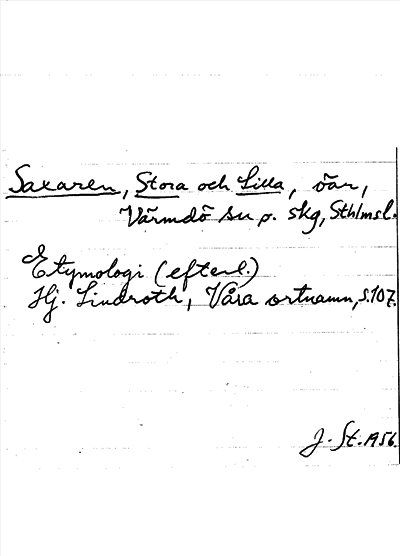 Saxaren, Stora och Lilla, öar,
Värmdö sn o. skg, Sthlmsl.
Etymologi (efterl.)
Hj. Lindroth, Våra ortnamn, s. 107.
J. St. 1956.